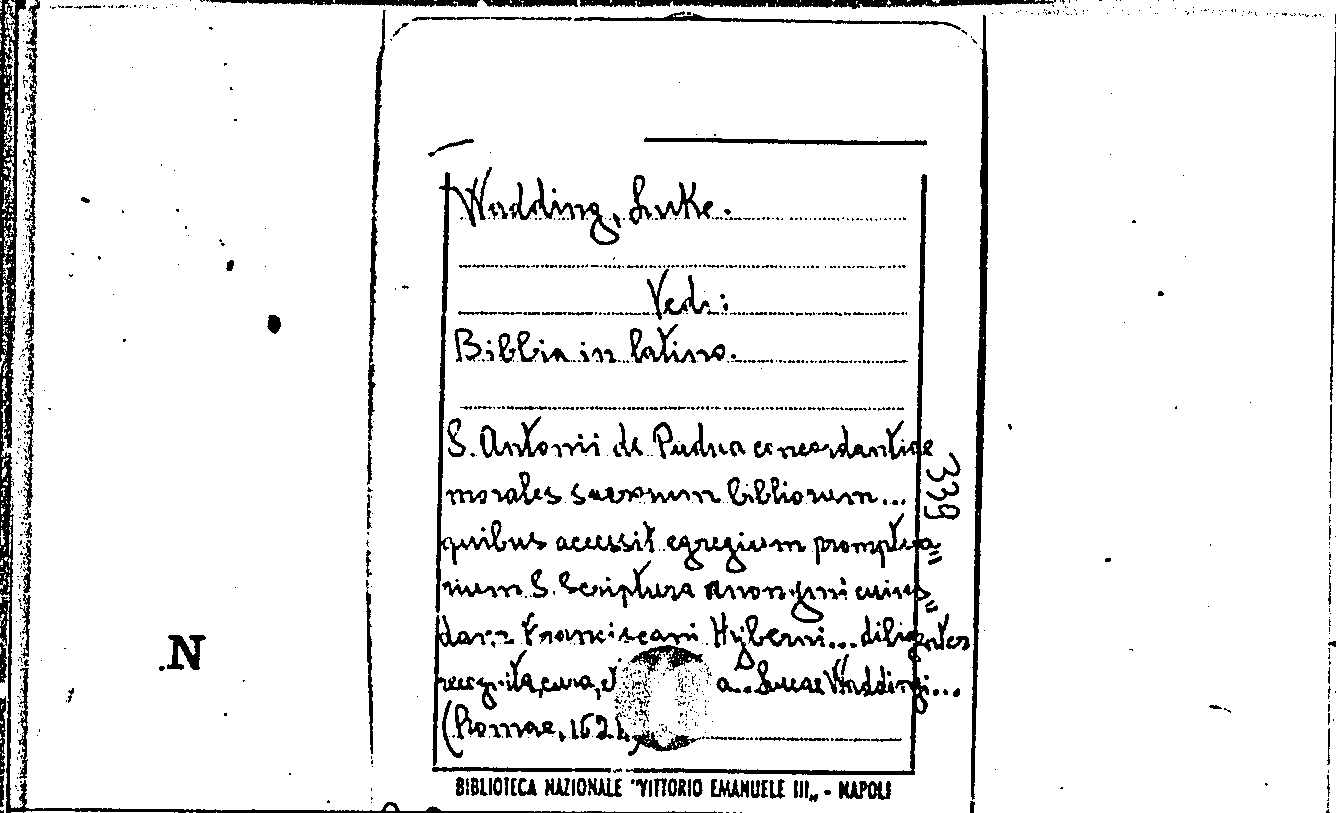 Wadding, Luke.
Vedi:
Biblia in latino.
S. Antonii de Padua concordantiae
morales sacrorum bibliorum...
quibus accessit egregium prompta=
rium S. Scriptura anonymi cuius=
dam Franciscani Hyberni... diligentes
recognita, cura, et a... Lucae Waddingi...
(Romae, 1624)
339
.N
BIBLIOTECA NAZIONALE "VITTORIO EMANUELE III„ - NAPOLI